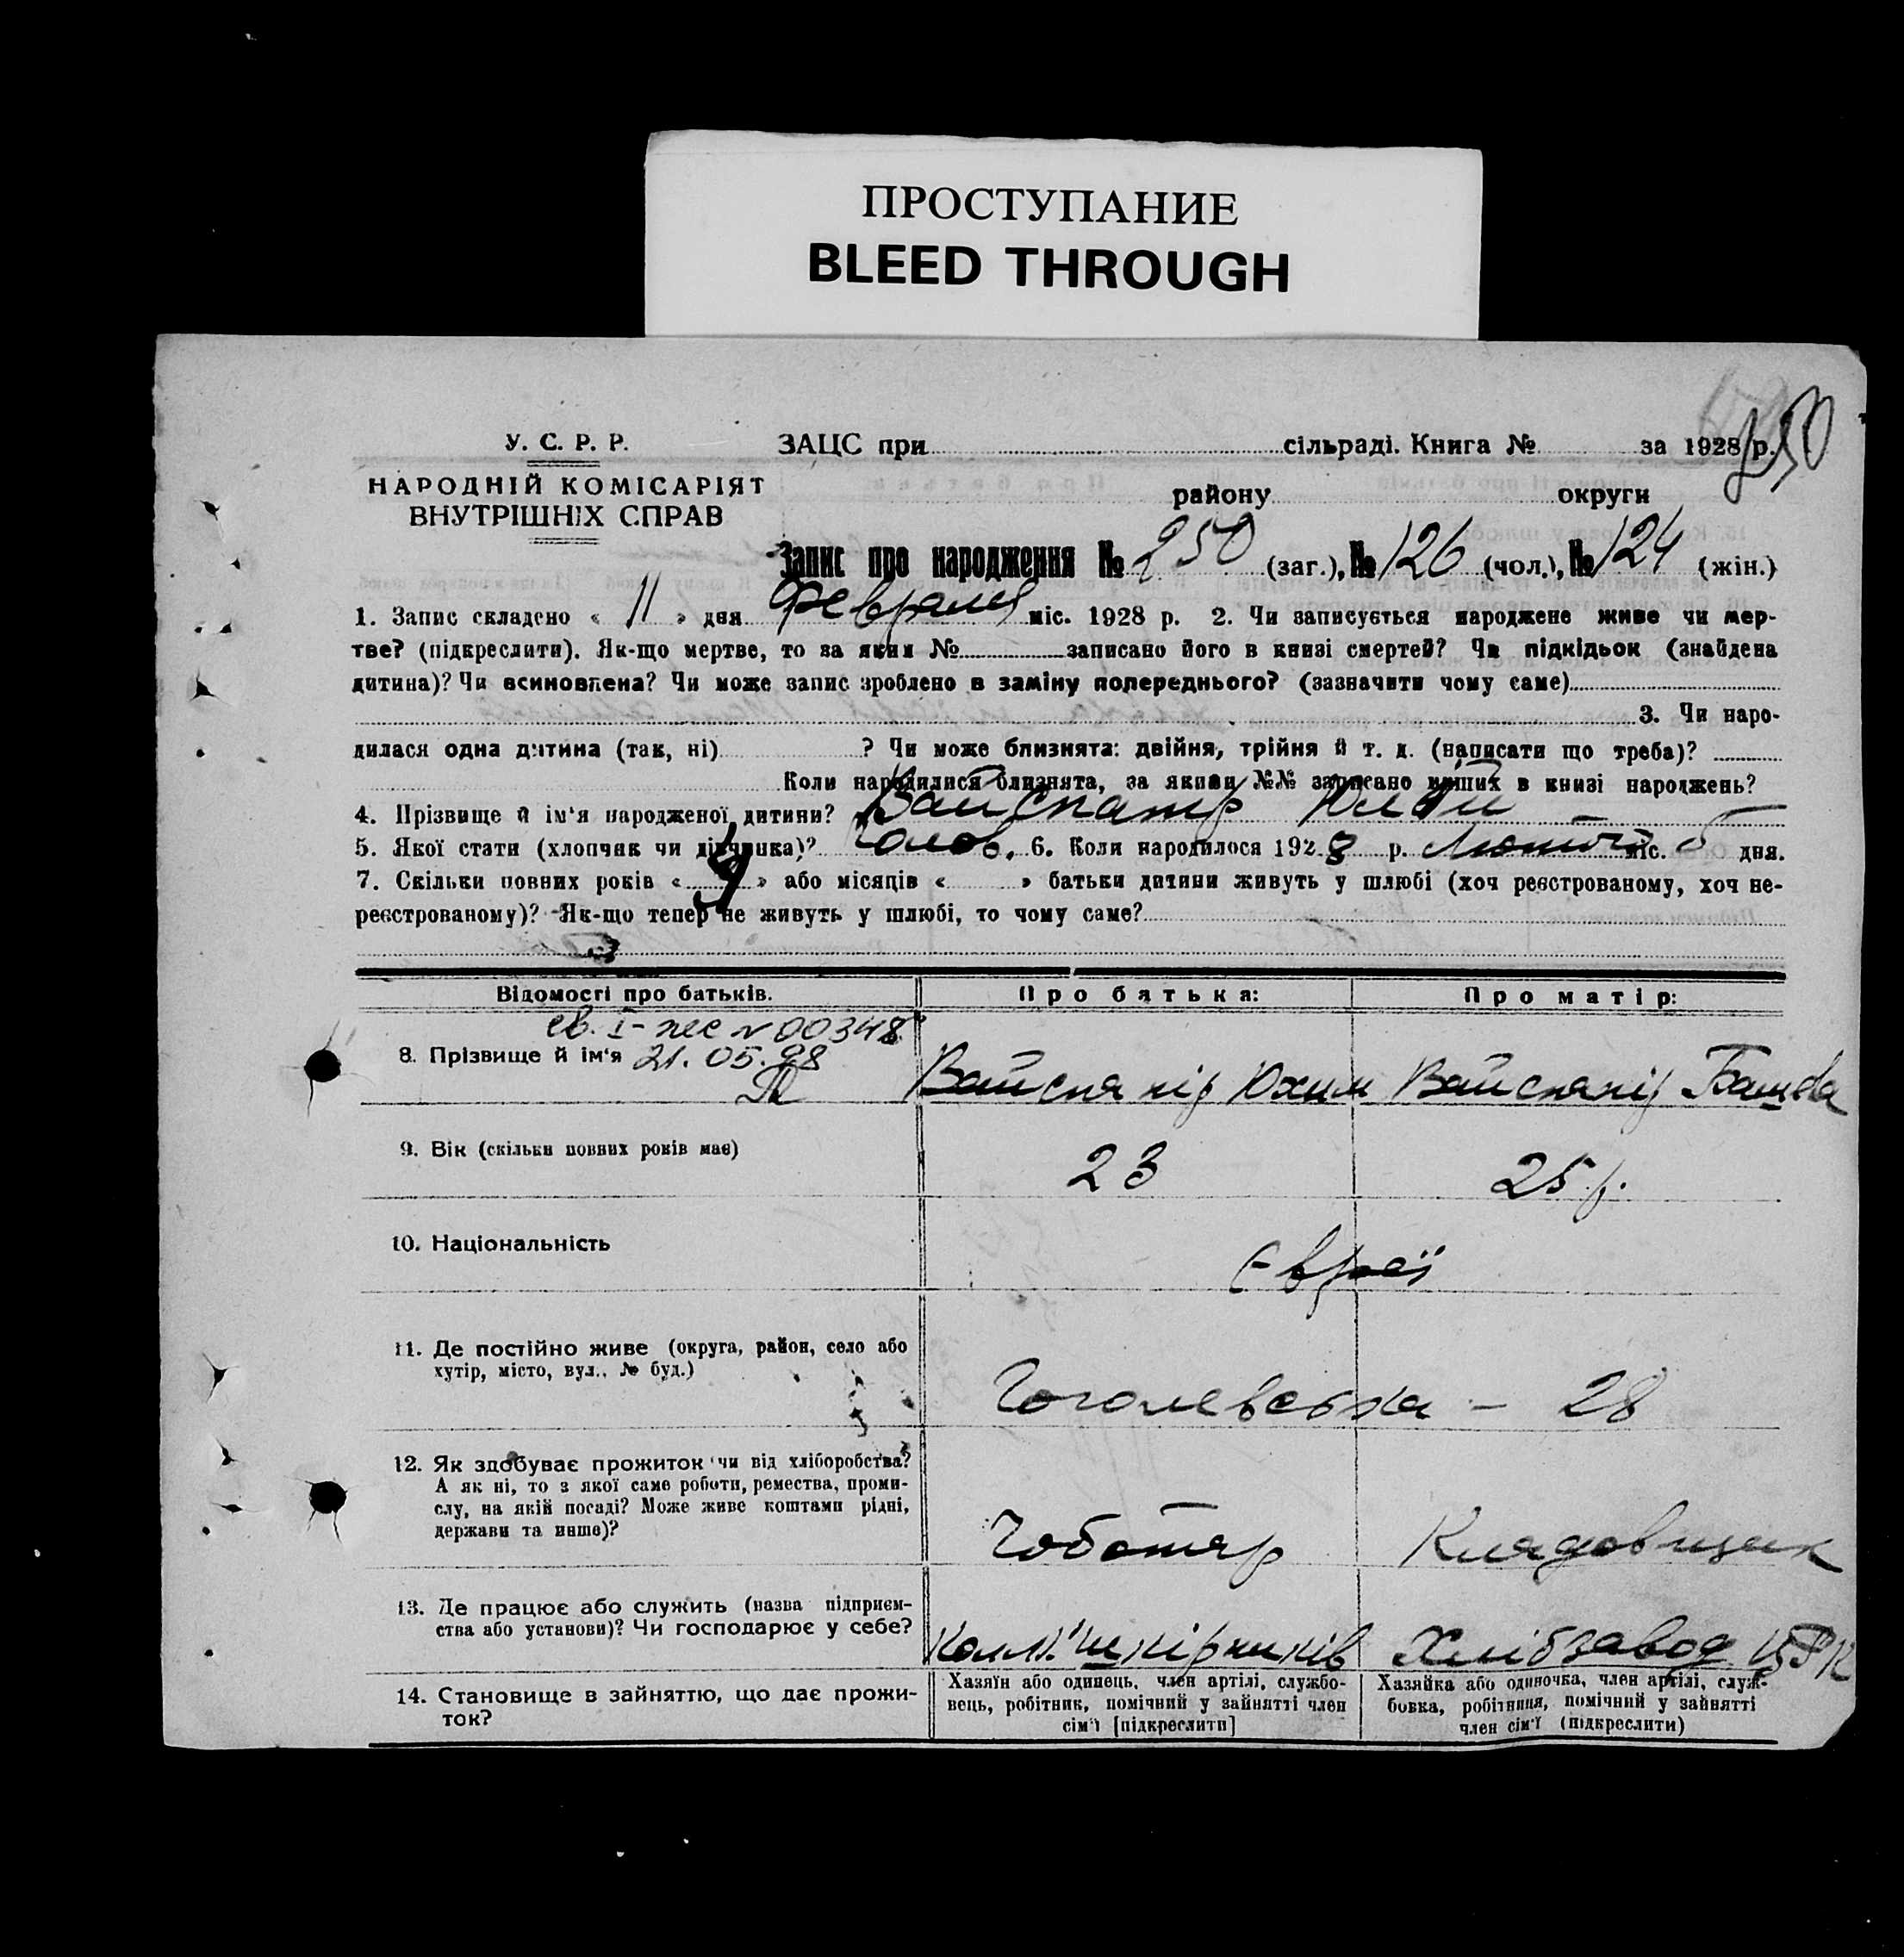 ПРОСТУПАНИЕ
BLEED THROUGH
250
У. С. Р. Р.
ЗАЦС при сільраді. Книга № за 1928 р.
НАРОДНІЙ КОМІСАРІЯТ
ВНУТРІШНІХ СПРАВ
району округи
Запис про народження № 250 (заг.), № 126 (чол.), № 124 (жін.)
1. Запис складено « 11 » дня Февраля міс. 1928 р. 2. Чи записується народжене живе чи мер-
тве? (підкреслити). Як-що мертве, то за яким № записано його в книзі смертей? Чи підкідьок (знайдена
дитина)? Чи всиновлена? Чи може запис зроблено в заміну попереднього? (зазначити чому саме)
3. Чи наро-
дилася одна дитина (так, ні) ? Чи може близнята: двійня, трійня й т. д. (написати що треба)?
Коли народилися близнята, за якими №№ записано інших в книзі народжень?
4. Прізвище й ім'я народженої дитини? Вайспапір
5. Якої стати (хлопчик чи дівчинка)? Чолов. 6. Коли народилося 1928 р. Лютий міс. 5 дня.
7. Скільки повних років « 4 » або місяців « » батьки дитини живуть у шлюбі (хоч реєстрованому, хоч не-
реєстрованому)? Як-що тепер не живуть у шлюбі, то чому саме?
Відомості про батьків.
Про батька:
Про матір:
св. I-жс № 00348
8. Прізвище й ім'я 21.05.98
Вайспапір Юхим
Вайспапір
9. Вік (скільки повних років має)
23
25 р.
10. Національність
Євреї
11. Де постійно живе (округа, район, село або
хутір, місто, вул., № буд.)
Гоголевська – 28
12. Як здобуває прожиток чи від хліборобства?
А як ні, то з якої саме роботи, ремества, проми-
слу, на якій посаді? Може живе коштами рідні,
держави та инше)?
Чоботар
Клядовщик
13. Де працює або служить (назва підприєм-
ства або установи)? Чи господарює у себе?
Колл. шкірників
Хлібзавод ЦРК
14. Становище в зайняттю, що дає прожи-
ток?
Хазяїн або одинець, член артілі, службо-
вець, робітник, помічний у зайнятті член
сім'ї [підкреслити]
Хазяйка або одиночка, член артілі, служ-
бовка, робітниця, помічний у зайнятті
член сім'ї (підкреслити)